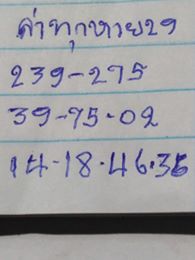 ล่าทุกหวย29
239-275
39-75-02
14-18-46-36